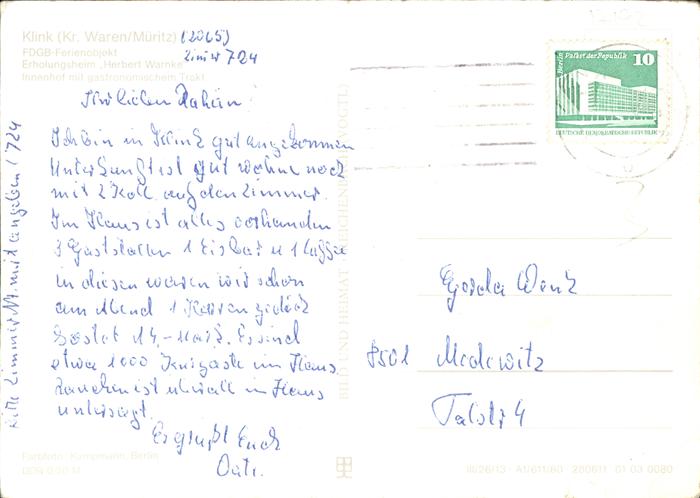 Klink (Kr. Waren/Müritz) (2065)
FDGB-Ferienobjekt
Zimmer 724
Erholungsheim „Herbert Warnke"
Innenhof mit gastronomischem Trakt
Ihr lieben
Ich bin in Klink gut angekommen
Unterkunft ist gut wohne noch
mit 2 Koll. auf den Zimmer.
Im Haus ist alles vorhanden
3 Gaststätten 1 Eisbar u 1 Kaffee
in diesen waren wir schon
am Abend 1
kostet 14,- Mark. Es sind
etwa 1000 im Haus.
Rauchen ist überall im Haus
untersagt.
Es grüßt Euch
Bitte Zimmer Nr. mit angeben (724
Farbfoto: Kampmann, Berlin
DDR 0,20 M
BILD UND HEIMAT REICHENBACH (VOGTL)
III/26/13 A1/611/80 280611 01 03 0080
Berlin Palast der Republik
10
DEUTSCHE DEMOKRATISCHE REPUBLIK
Gerda Wenk
8501 Medewitz
Talstr 4